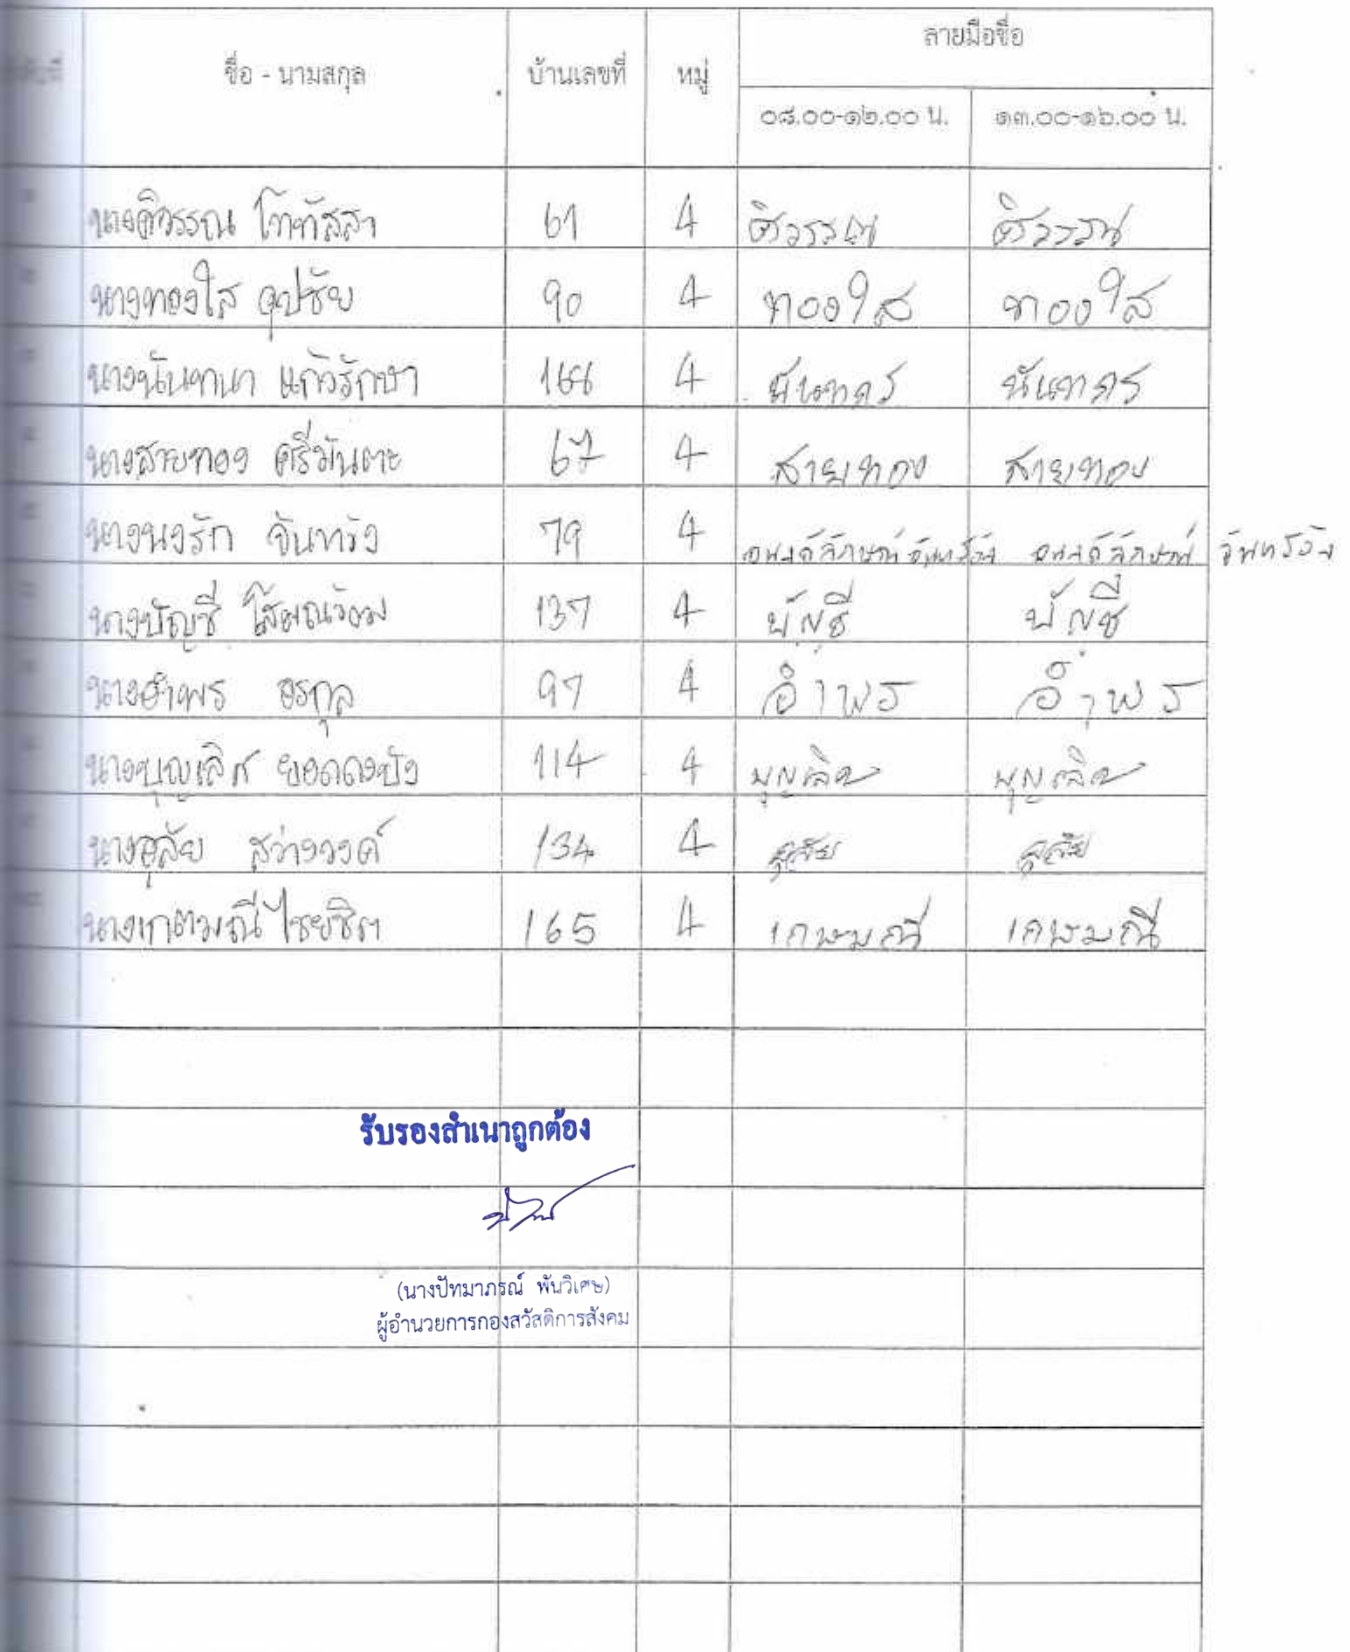 ลายมือชื่อ
ชื่อ - นามสกุล บ้านเลขที่ หมู่
๐๘.๐๐-๑๒.๐๐ น. ๑๓.๐๐-๑๖.๐๐ น.
นางศิวรรณ โททัสสา 61 4 ศิวรรณ ศิวรรณ
นางทองใส อุปชัย 90 4 ทองใส ทองใส
นางนันทนา แก้วรักษา 4
นางสายทอง ศรีมันตะ 67 4 สายทอง สายทอง
นางนงรัก จันทรัง 79 4
นางบัญชี 137 4 บัญชี บัญชี
นางอำพร อรกุล 97 4 อำพร อำพร
นางบุญเลิศ ยอดดงบัง 114 4 บุญเลิศ บุญเลิศ
นางอุลัย สว่างวงค์ 134 4 อุลัย อุลัย
นางเกตมณี ไชยชิต 165 4 เกษมณี เกษมณี
รับรองสำเนาถูกต้อง
(นางปัทมาภรณ์ พันวิเศษ)
ผู้อำนวยการกองสวัสดิการสังคม